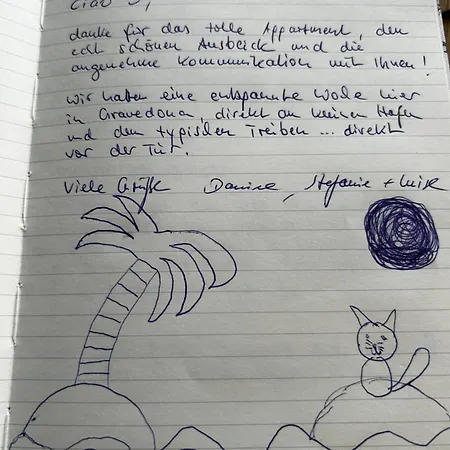 Ciao
danke für das tolle Appartment, den
echt schönen Ausblick und die
angenehme Kommunikation mit Ihnen!
Wir haben eine entspannte Woche hier
in Gravedona, direkt am kleinen Hafen
und dem typischen Treiben ... direkt
vor der Tür.
Viele Grüße Danina, Stefanie + Luisa